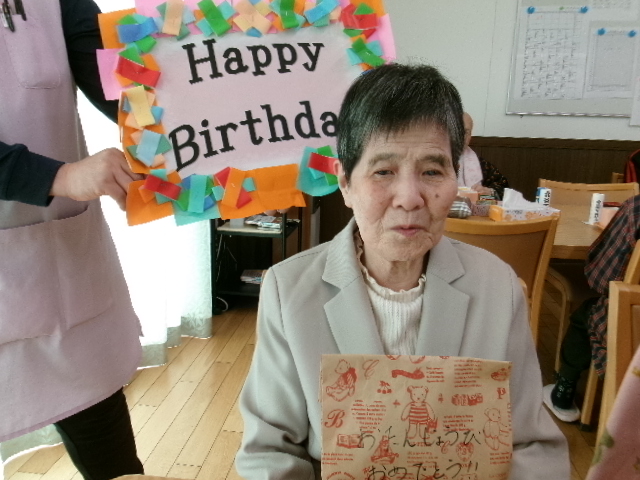 Happy
Birthda
おたんじょうび
おめでとう!!